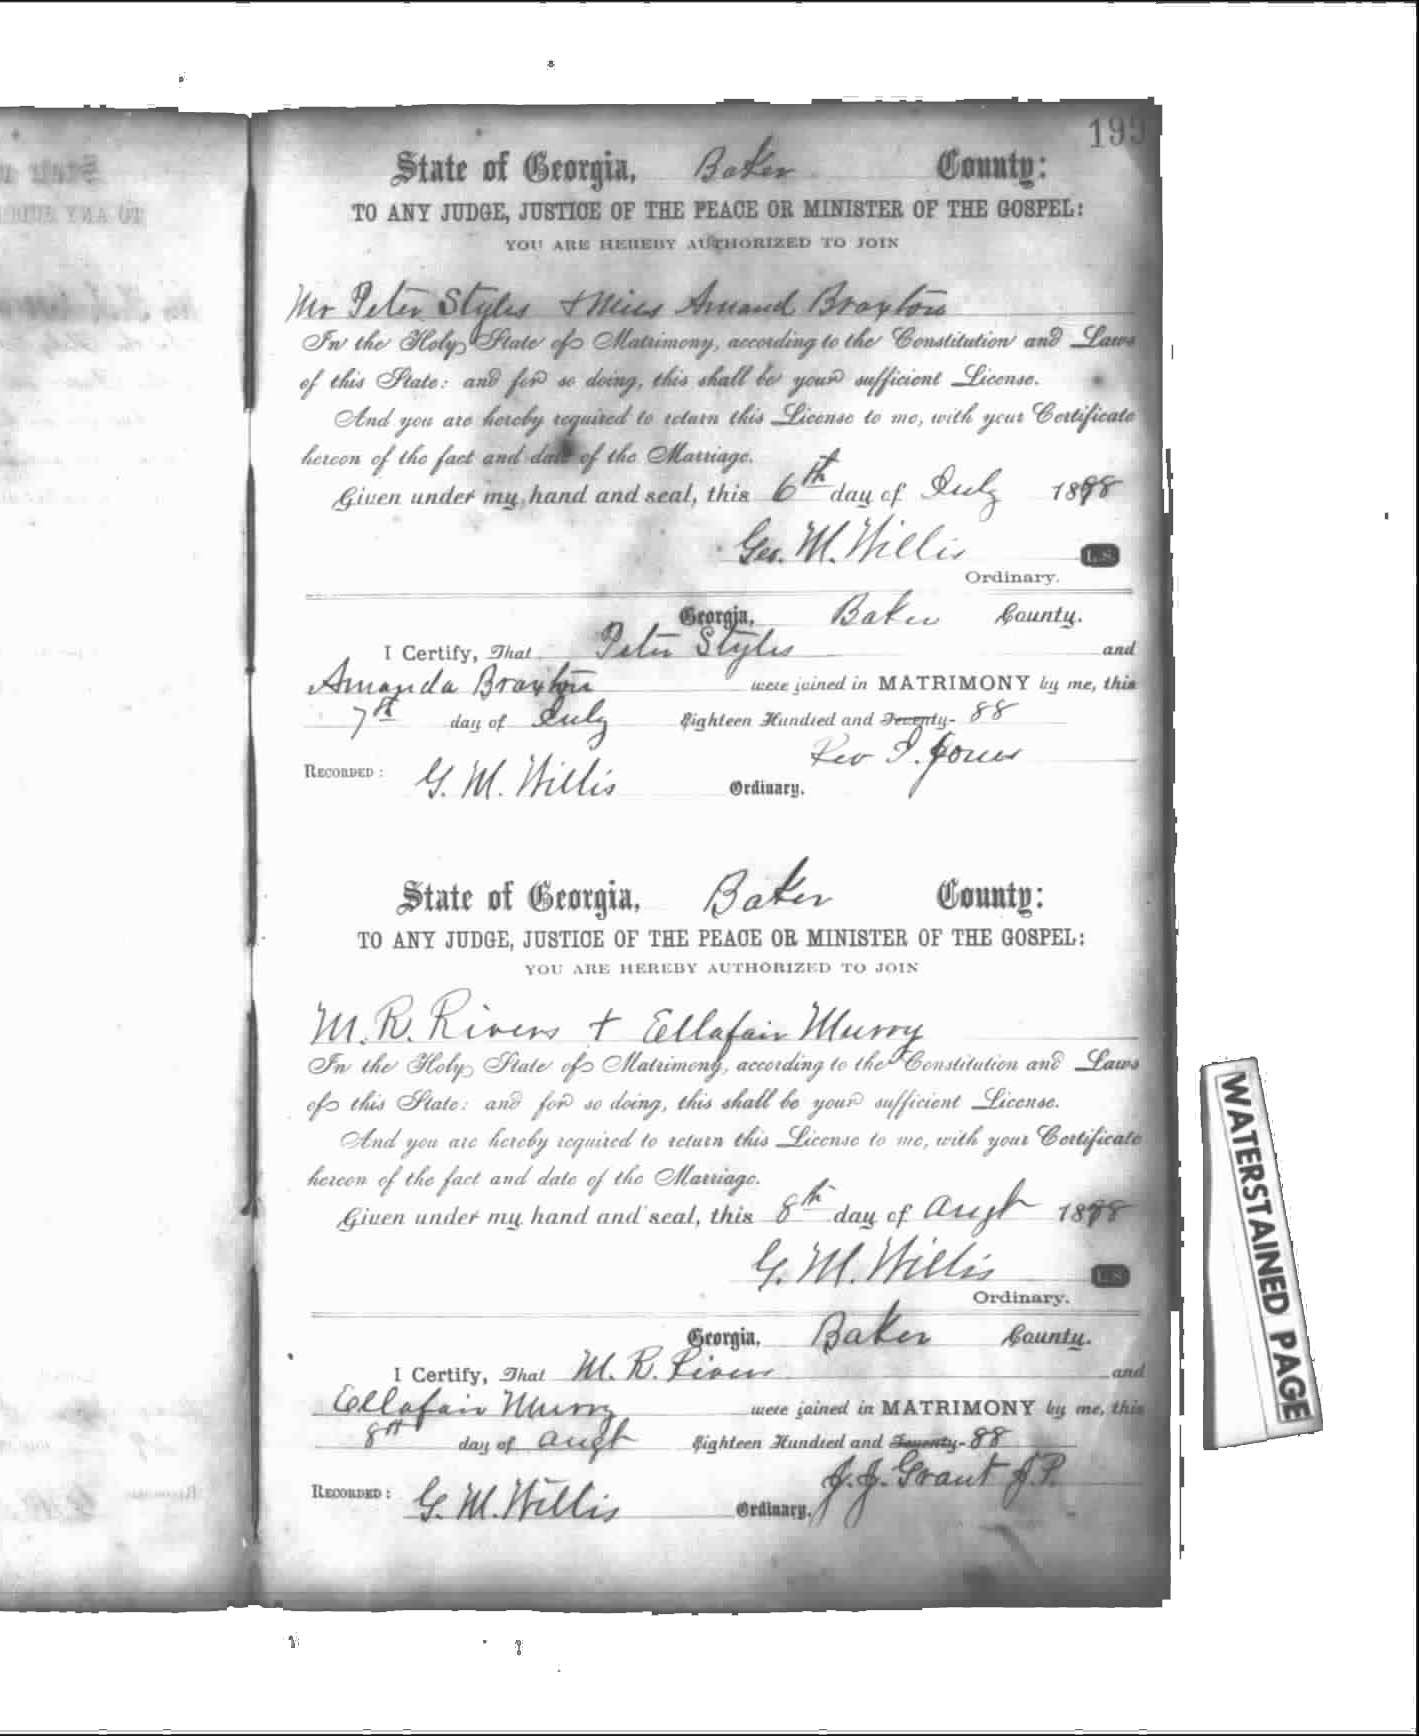 State of Georgia, Baker County:
TO ANY JUDGE, JUSTICE OF THE PEACE OR MINISTER OF THE GOSPEL:
YOU ARE HEREBY AUTHORIZED TO JOIN
Mr Peter Styles + Miss Amand Braxton
In the Holy State of Matrimony, according to the Constitution and Laws
of this State: and for so doing, this shall be your sufficient License.
And you are hereby required to return this License to me, with your Certificate
hereon of the fact and date of the Marriage.
Given under my hand and seal, this 6th day of July 1888
Geo. M. Willis L. S.
Ordinary.
Georgia, Baker County.
I Certify, That Peter Styles and
Amanda Braxton were joined in MATRIMONY by me, this
7th day of July Eighteen Hundred and Seventy- 88
Rev I. Jones
RECORDED: G. M. Willis Ordinary.
State of Georgia, Baker County:
TO ANY JUDGE, JUSTICE OF THE PEACE OR MINISTER OF THE GOSPEL:
YOU ARE HEREBY AUTHORIZED TO JOIN
M. R. Rivers + Ellafair Murry
In the Holy State of Matrimony, according to the Constitution and Laws
of this State: and for so doing, this shall be your sufficient License.
And you are hereby required to return this License to me, with your Certificate
hereon of the fact and date of the Marriage.
Given under my hand and seal, this 8th day of Augt 1888
G. M. Willis L. S.
Ordinary.
Georgia, Baker County.
I Certify, That M. R. Rivers and
Ellafair Murry were joined in MATRIMONY by me, this
8th day of Augt Eighteen Hundred and Seventy- 88
J. J. Grant J.P.
RECORDED: G. M. Willis Ordinary.
WATERSTAINED PAGE